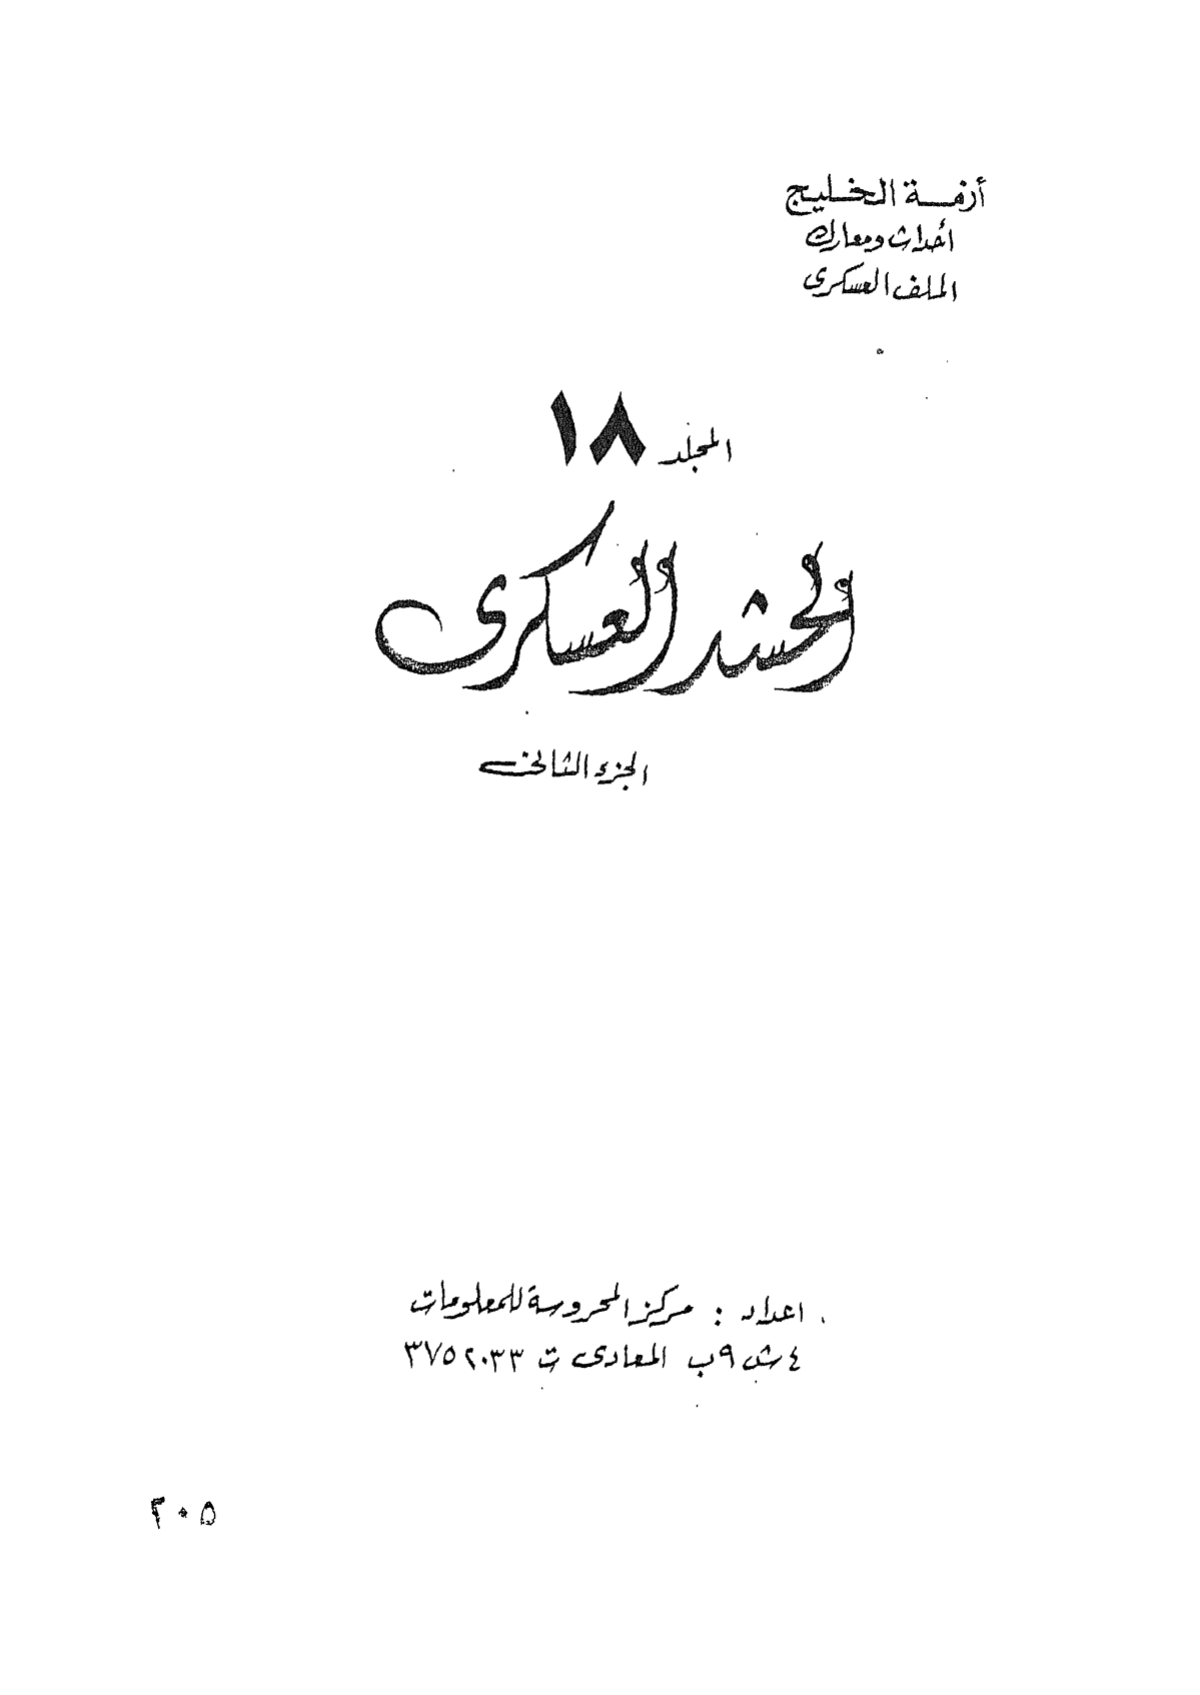 أزمة الخليج
أحداث ومعارك
الملف العسكرى
المجلد ١٨
الحشد العسكرى
الجزء الثانى
اعداد : مركز المحروسة للمعلومات
٤ ش ٩ ب المعادى ت ٣٧٥٢٠٣٣
٢٠٥